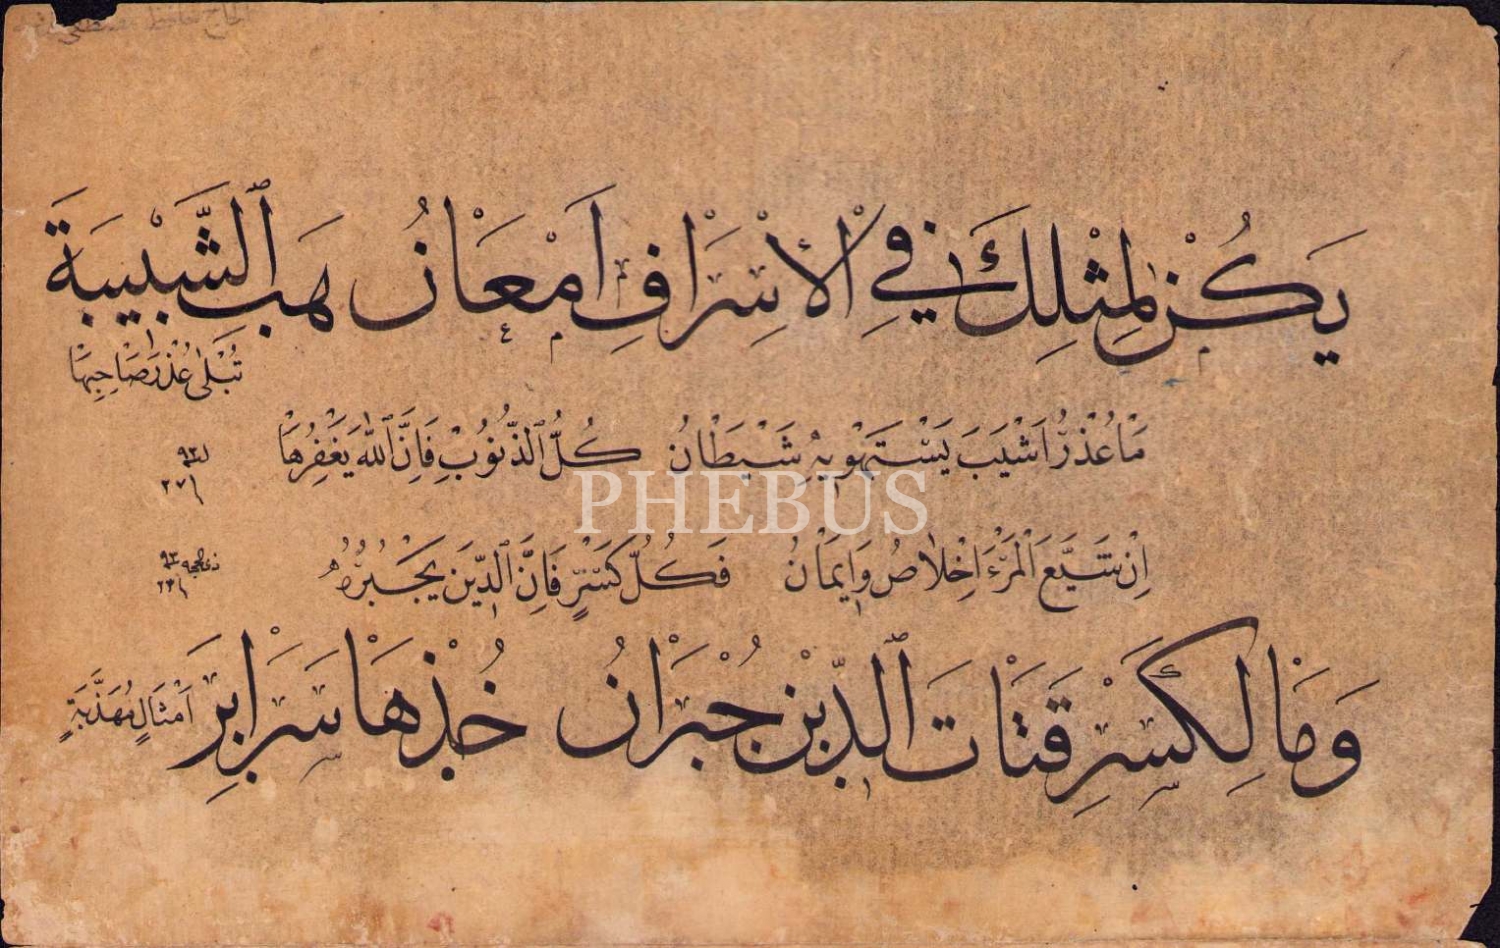 الحاج حافظ مصطفى
يَكُنْ لِمِثْلِكَ فِي الْاِسْرَافِ اَمْعَانُ هَبِ الشَّبِيبَةَ
تُبْلٰى عُذْرَ صَاحِبِهَا
مَا عُذْرُ اَشْيَبَ يَسْتَهْوِيهِ شَيْطَانُ كُلُّ الذُّنُوبْ فَاِنَّ اللّٰهَ يَغْفِرُهَا
٩٣
٢٧
اِنْ شَيَّعَ الْمَرْءَ اِخْلَاصُ وَاِيمَانُ فَكُلُّ كَسْرٍ فَاِنَّ الدِّينَ يَجْبُرُهُ
٩٣
وَمَا لِكَسْرِ قَنَاتَ الدِّينِ جُبْرَانُ خُذْهَا سَرَايِرَ
اَمْثَالٍ مُهَذَّبَةٍ
PHEBUS